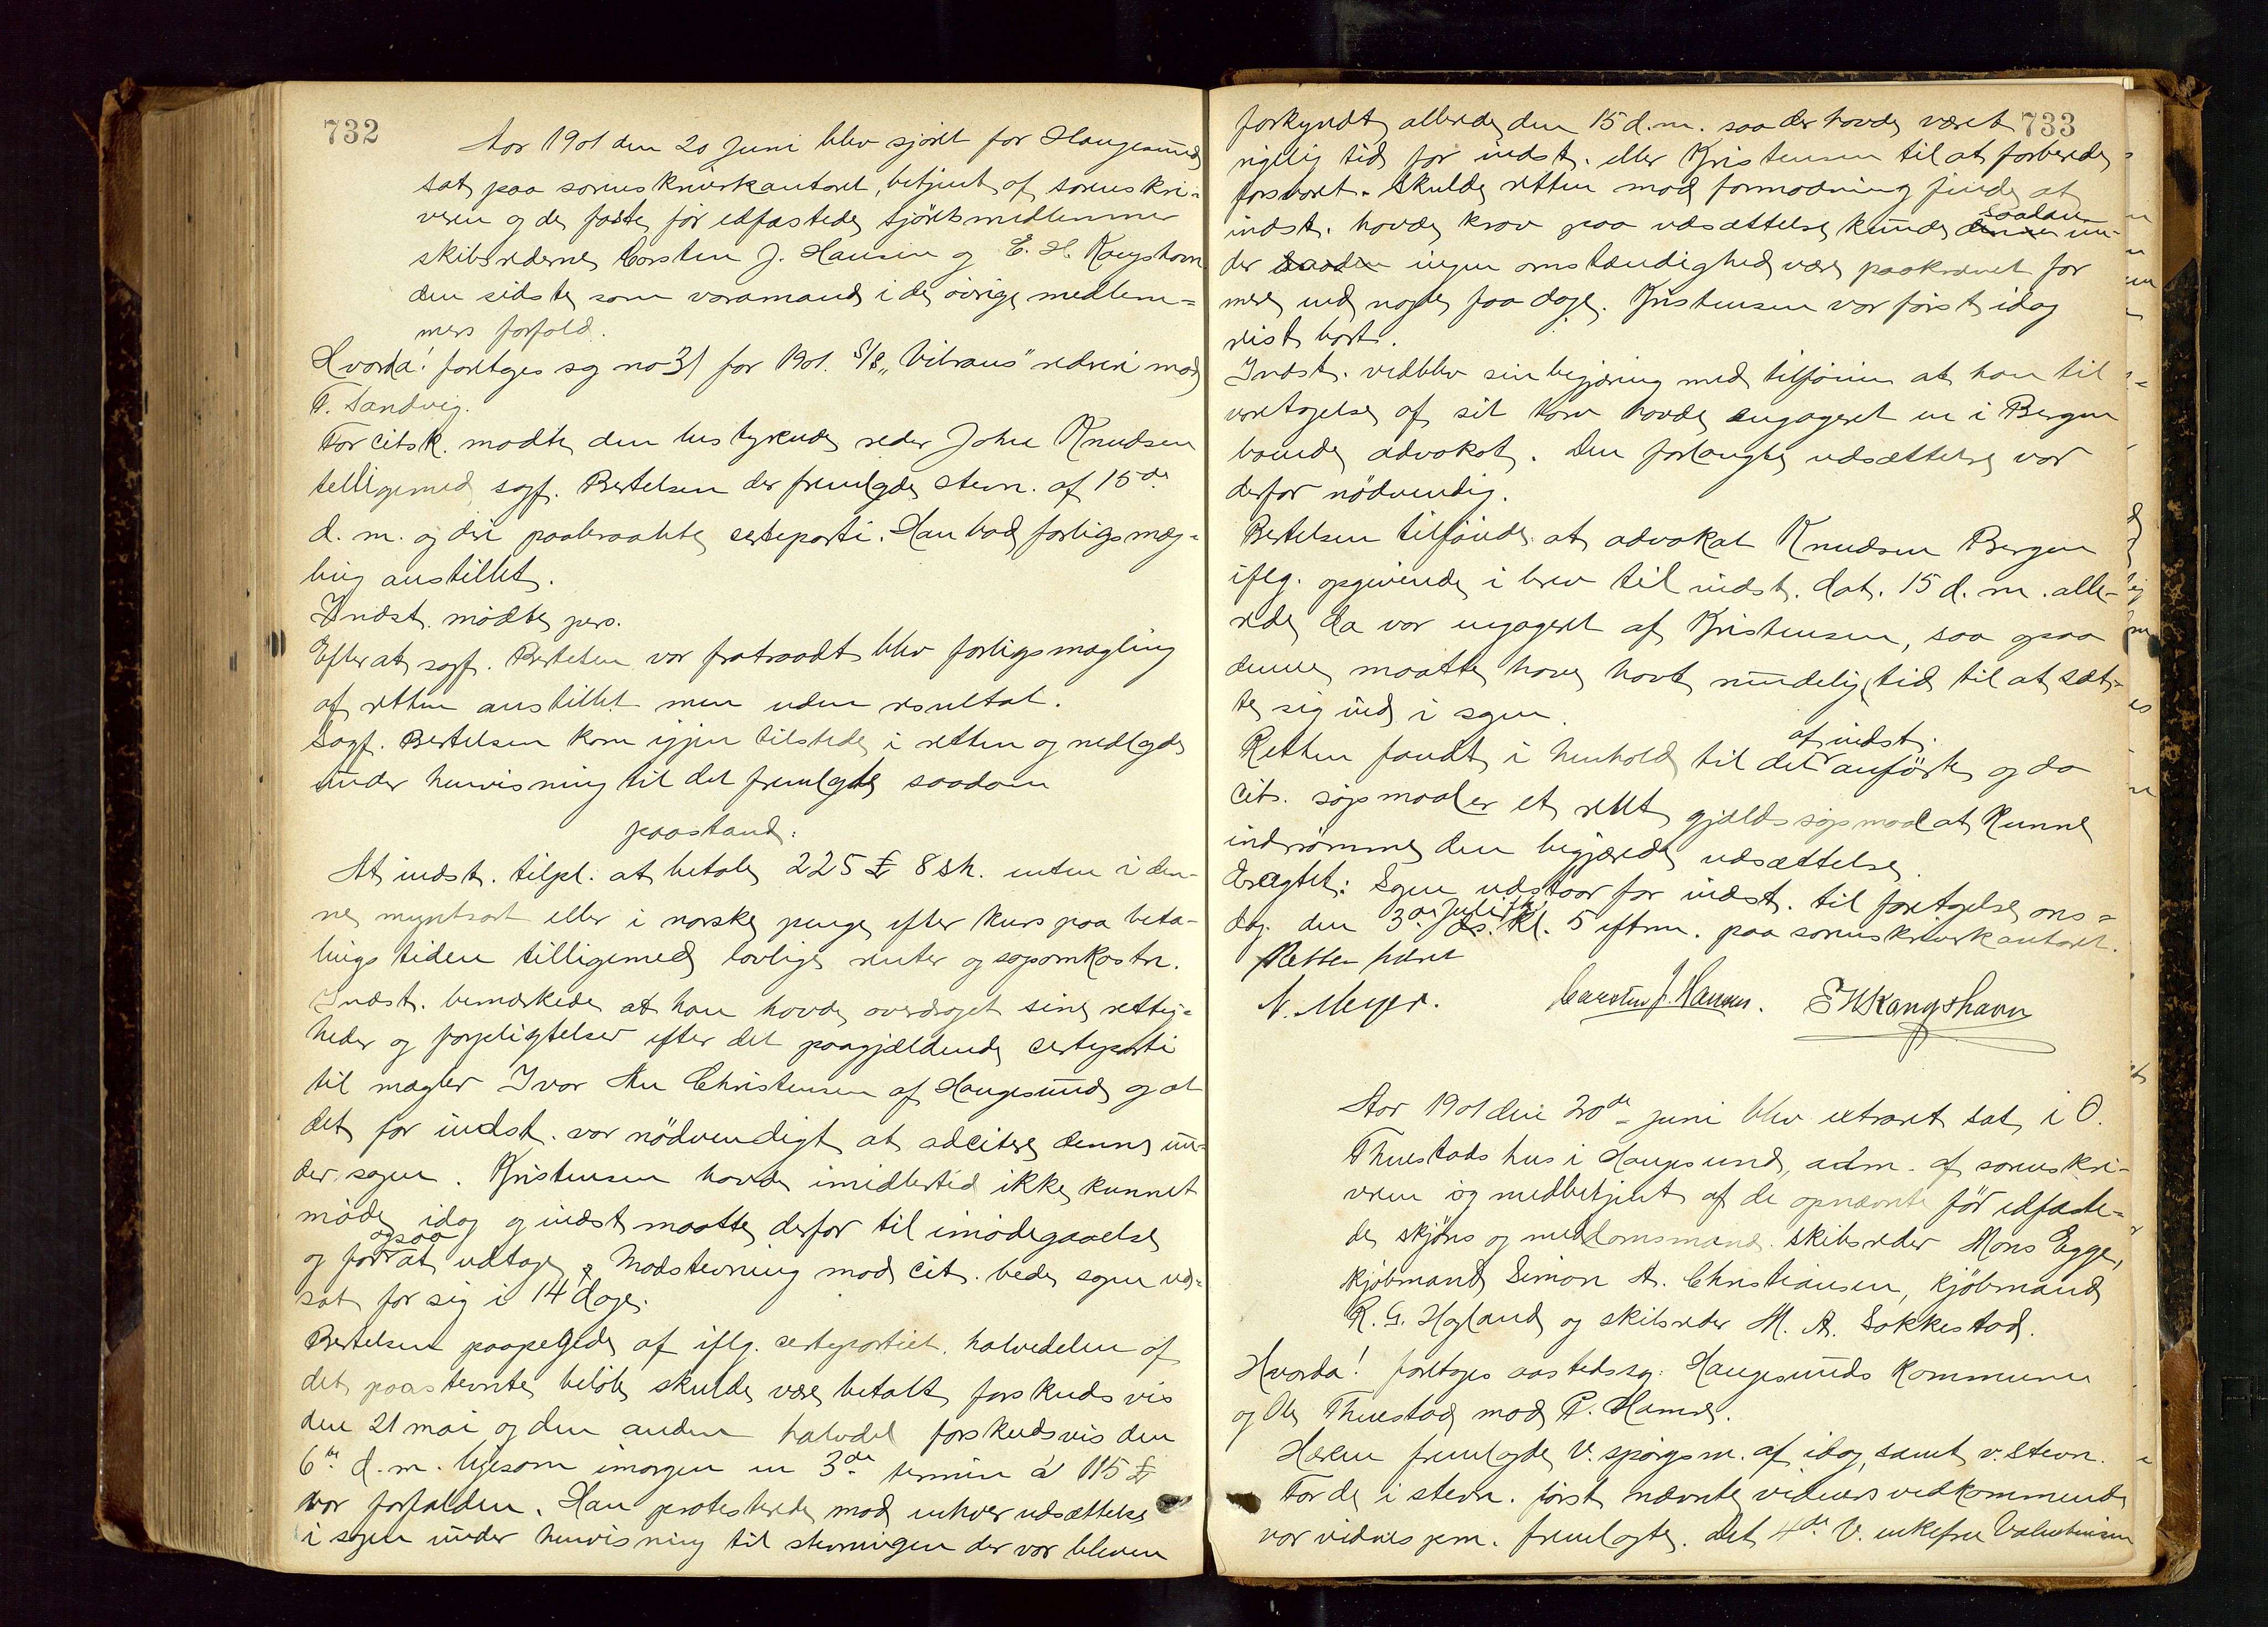 732
Aar 1901 den 20 Juni blev sjöret for Haugesund
sat paa sorenskriverkantoret, betjent af sorenskri-
veren og de faste för edfæstede sjöretsmedlemmer
skibsrederne Carsten J. Hansen og E. H. Kongshavn
den sidste som varamand i de övrige medlem=
mers forfald.
Hvorda! foretoges sag no 31 for 1901. S/S „Vibrans" rederi mod
T. Sandvig.
For citsk. mödte den bestyrende reder John Knudsen
telligemed sagf. Bertelsen der fremlagde stevn. af 15de
d. m. og deri paaberaabte certeparti. Han bad forligsmæg=
ling anstillet.
Indst. mödte pers.
Efterat sagf. Bertelsen var fratraadt blev forligsmægling
af retten anstillet men uden resultat.
Sagf. Bertelsen kom igjen tilstede i retten og nedlagde
under henvisning til det fremlagte saadan
paastand:
At indst. tilpl. at betale 225 £ 8 sh. enten i den-
ne myntsort eller i norske penge efter kurs paa beta-
lingstiden tilligemed lovlige renter og sagsomkostn.
Indst. bemærkede at han havde overdraget sine rettig=
heder og forpligtelser efter det paagjældende certeparti
til mægler Ivar An Christensen af Haugesund og at
det for indst. var nödvendigt at adcitere denne un=
der sagen. Kristensen havde imidlertid ikke kunnet
möde idag og indst. maatte derfor til imödegaaelse
og for ogsaa at udtage Modstevning mod cit. bede sagen ud=
sat for sig i 14 dage.
Bertelsen paapegede at iflg. certepartiet halvdelen af
det paastevnte belöb skulde være betalt forskudsvis
den 21 mai og den anden halvdel forskudsvis den
6te d. m. ligesom imorgen en 3de termin á 115 £
var forfalden. Han protesterede mod enhver udsættelse
i sagen under henvisning til stevningen der var bleven
733
forkyndt allerede den 15 d. m. saa der havde været
rigelig tid for indst. eller Kristensen til at forberede
forsvaret. Skulde retten mod formodning finde at
indst. havde krav paa udsættelse kunde saadan un-
der ingen omstændighed være paakrævet for
mere end nogle faa dage. Kristensen var först idag
reist bort.
Indst. vedblev sin begjæring med tilföiende at han til
varetagelse af sit tarv havde engageret en i Bergen
boende advokat. Den forlangte udsættelse var
derfor nödvendig.
Bertelsen tilföiede at advokat Knudsen Bergen
iflg. opgivende i brev til indst. dat. 15 d. m. alle-
rede da var engageret af Kristensen, saa ogsaa
denne maatte have havt rundelig tid til at sæt-
te sig ind i sagen.
Retten fandt i henhold til det af indst. anförte og da
cits. sögsmaal er et rent gjældssögsmaal at kunne
indrömme den begjærede udsættelse.
Eragtet: Sagen udstaar for indst. til foretagelse ons=
dag den 3die Juli kl. 5 eftrm. paa sorenskriverkantoret.
Retten hævet
N. Meyer. Carsten J. Hansen. E H Kongshavn
Aar 1901 den 20de juni blev extraret sat i O.
Thuestads hus i Haugesund, adm. af sorenskri-
veren og medbetjent af de opnævnte för edfæste-
de skjöns og meddomsmænd. skibsreder Mons Egge,
kjöbmand Simon A. Christiansen, kjöbmand
K. G. Hagland og skibsreder M. A. Sakkestad.
Hvorda! foretoges aastedssag: Haugesunds kommune
og Ole Thuestad mod P. Hamre.
Haren fremlagde V. spörgsm. af idag, samt v. stevn.
For de i stevn. först nævnte vidners vedkommende
var vidnespm. fremlagte. Det 4de V. enkefru Valentinsen